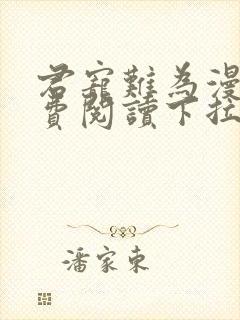 君寵難為漫
費閱讀下拉
潘家東